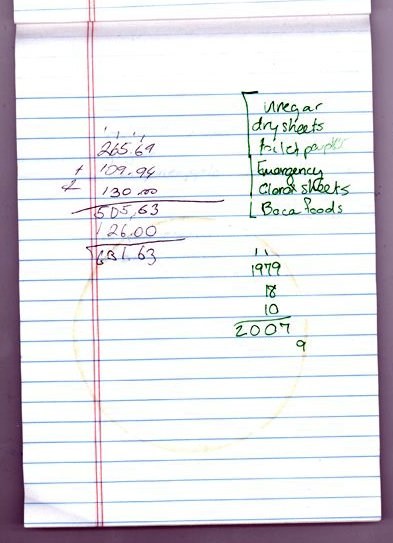 265.69
+ 109.94
+ 130.00
505,63
126.00
631.63
vinegar
dry sheets
toilet
Emergency
Clorox sheets
Boca foods
1979
18
10
2007
9